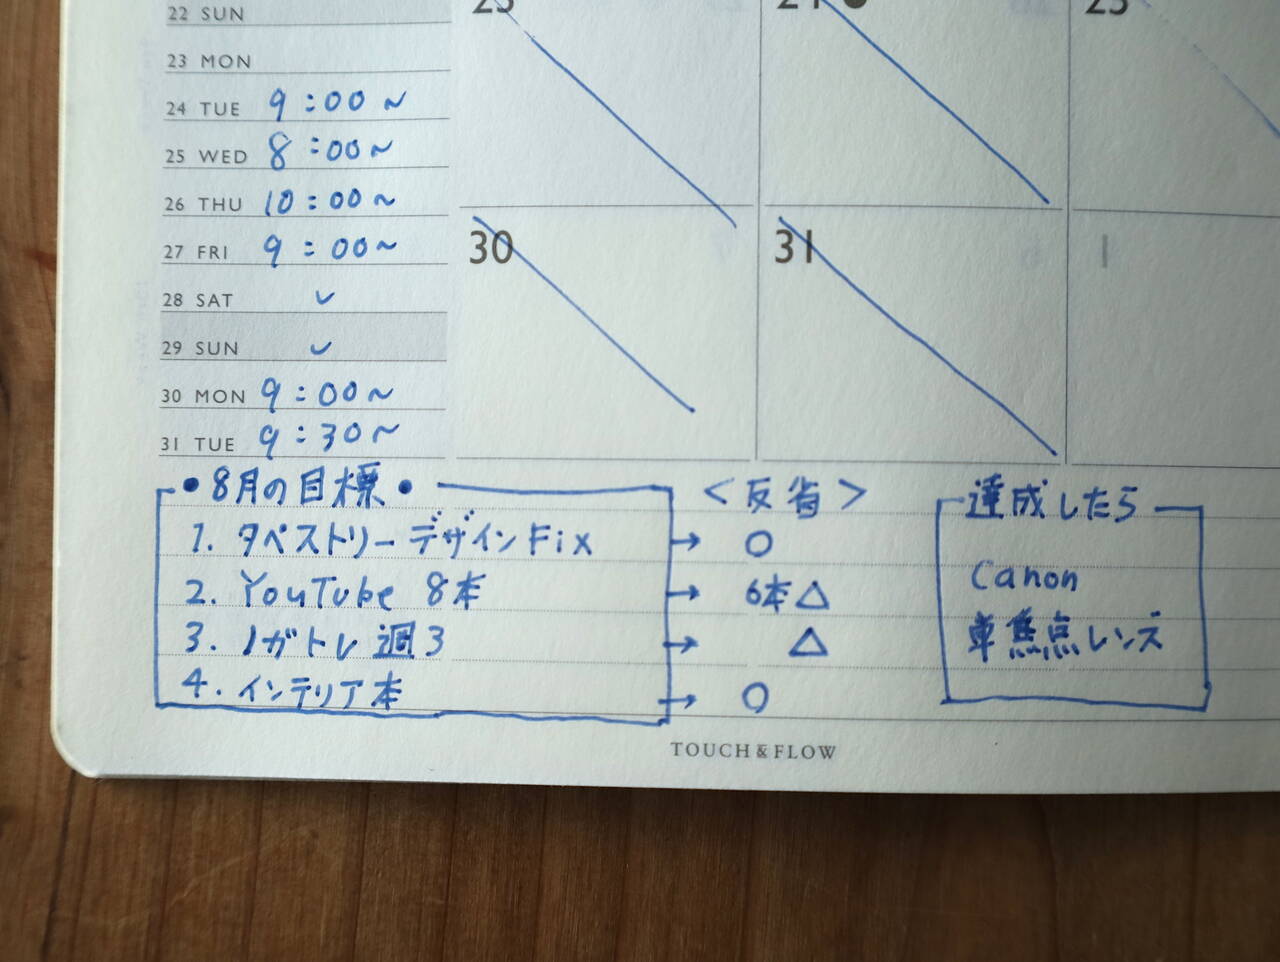 22 SUN
23 MON
24 TUE 9:00~
25 WED 8:00~
26 THU 10:00~
27 FRI 9:00~
28 SAT ✓
29 SUN ✓
30 MON 9:00~
31 TUE 9:30~
30
31
1
●8月の目標●
1. タペストリーデザインFix → ○
2. YouTube 8本 → 6本△
3. ノガトレ 週3 → △
4. インテリア本 → ○
<反省>
達成したら
Canon
単焦点レンズ
TOUCH&FLOW